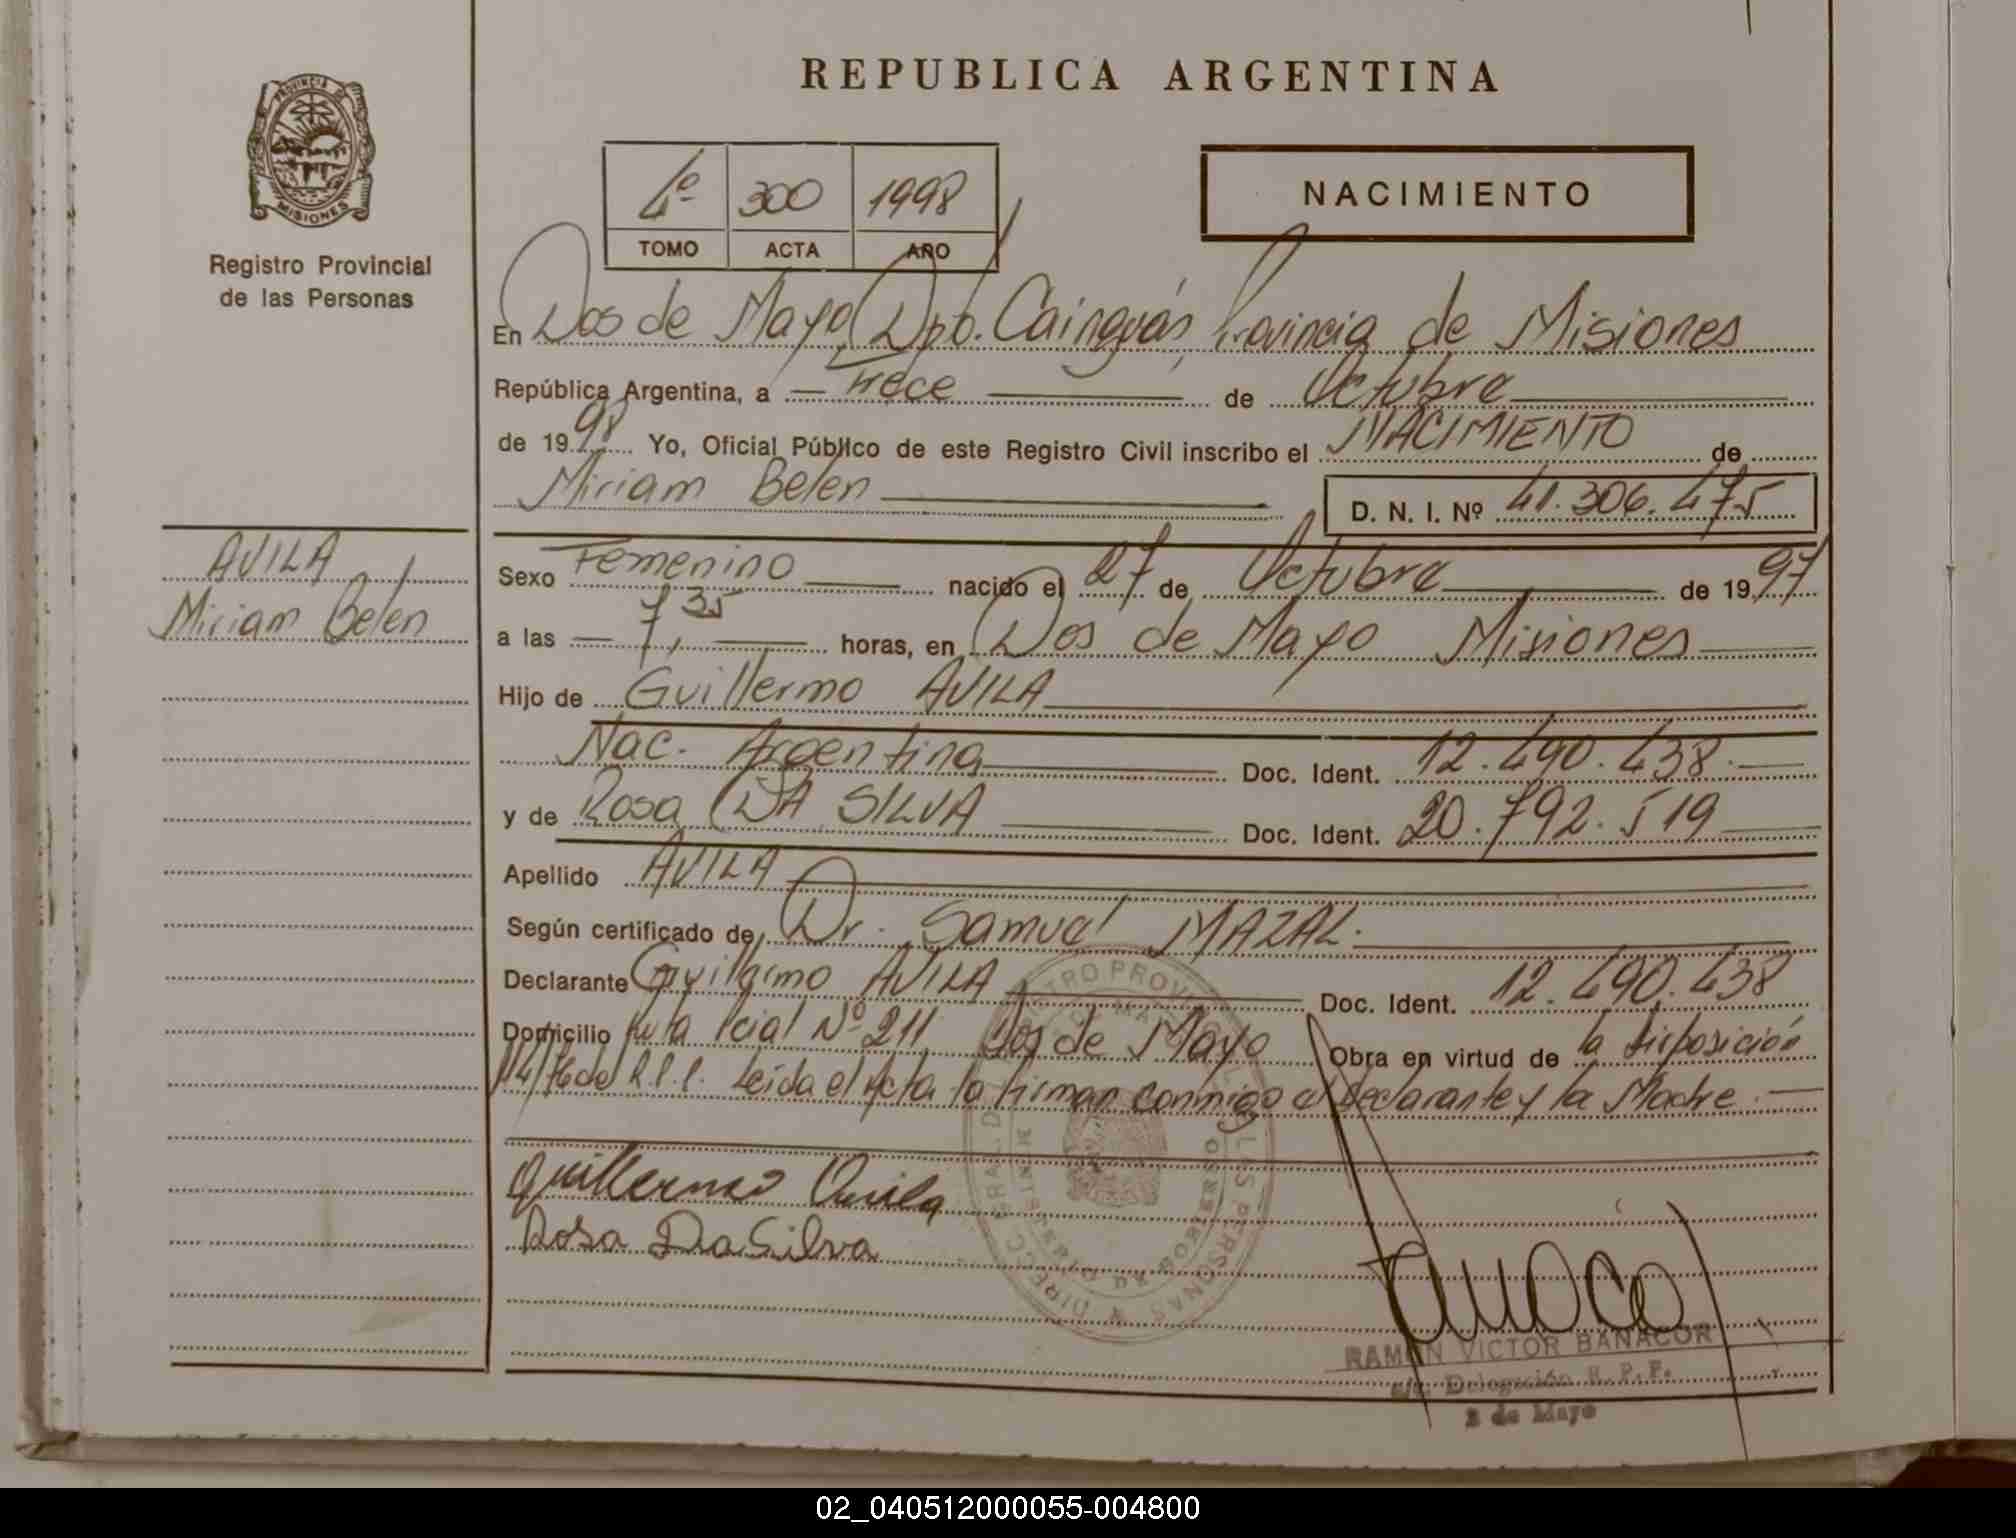 REPUBLICA ARGENTINA
PROVINCIA DE
MISIONES
Registro Provincial
de las Personas
4º 300 1998
TOMO ACTA AÑO
NACIMIENTO
En Dos de Mayo, Dpto. Cainguás, Provincia de Misiones
República Argentina, a — Trece — de Octubre —
de 1998 Yo, Oficial Público de este Registro Civil inscribo el NACIMIENTO de
Miriam Belen — D. N. I. Nº 41.306.475
AVILA
Miriam Belen
Sexo Femenino — nacido el 27 de Octubre — de 1997
a las — 7,35 — horas, en Dos de Mayo Misiones —
Hijo de Guillermo AVILA —
Nac. Argentina — Doc. Ident. 12.490.438.—
y de Rosa DA SILVA — Doc. Ident. 20.792.519 —
Apellido AVILA —
Según certificado de Dr. Samuel MAZAL. —
Declarante Guillermo AVILA — Doc. Ident. 12.490.438
Domicilio Ruta Pcial Nº 211 Dos de Mayo Obra en virtud de la disposición
de R.P.P. Leida el Acta la firman conmigo el Declarante y la Madre. —
Guillermo Avila
Rosa Da Silva
RAMON VICTOR BANACOR
Delegación R. P. P.
2 de Mayo
02_040512000055-004800